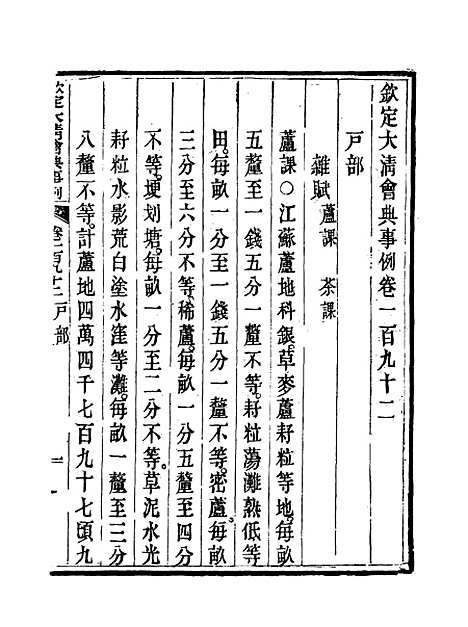 欽定大清會典事例卷一百九十二
戸部
雜賦蘆課 茶課
蘆課○江蘇蘆地科銀草麥蘆耔粒等地每畝
五釐至一錢五分一釐不等耔粒蕩灘熟低等
田每畝一分至一錢五分一釐不等密蘆每畝
三分至六分不等稀蘆每畝一分五釐至四分
不等埂划塘每畝一分至二分不等草泥水光
耔粒水影荒白塗水窪等灘每畝一釐至三分
八釐不等計蘆地四萬四千七百九十七頃九
欽定大清會典事例 卷一百九十二 戸部 一